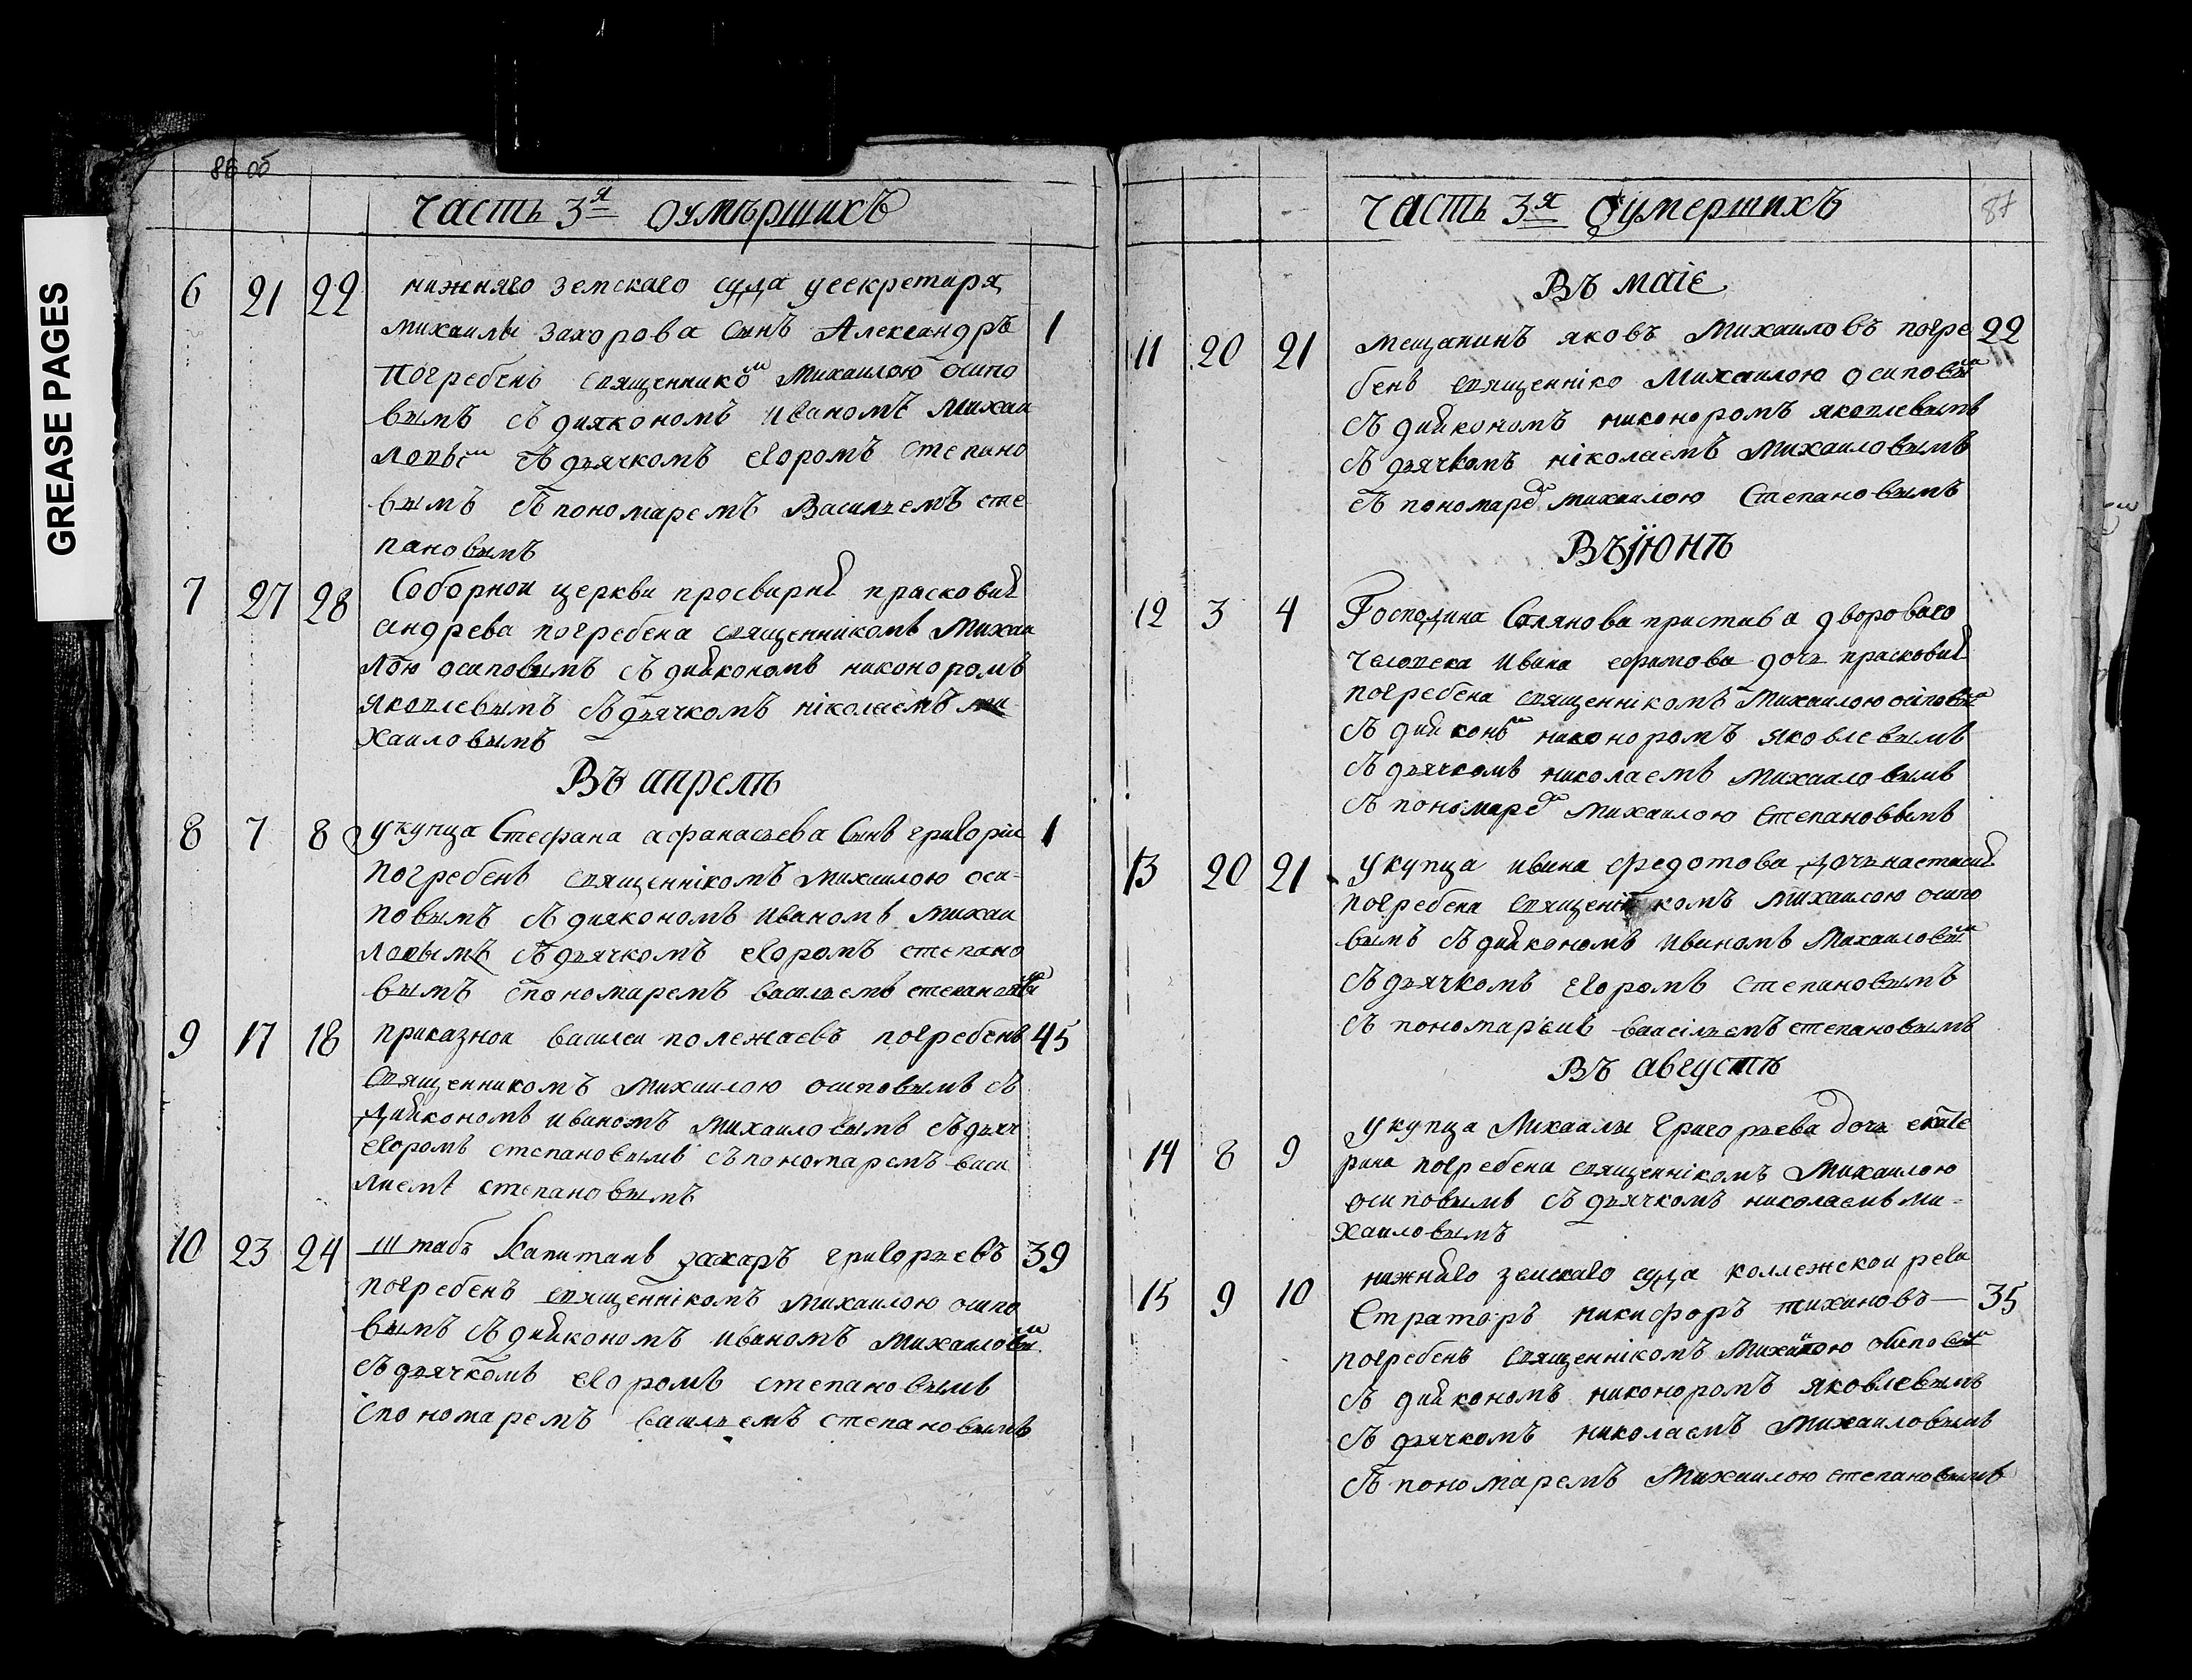 GREASE PAGES
86 об
часть 3я оумѣршихъ
6 21 22 нижняго земскаго суда усекретаря
михаилы захорова сынъ Александръ 1
погребенъ священникомъ михаилою осипо
вымъ съ диякономъ иваномъ михаи
ловымъ съ дьячкомъ егоромъ степано
вымъ съ пономаремъ васильемъ сте
пановымъ
7 27 28 Соборнои церкви просвирня прасковия
андрева погребена священникомъ михаи
лою осиповымъ съ дияконом никоноромъ
яковлевымъ съ дьячкомъ ніколаемъ ми
хаиловымъ
Въ апрелѣ
8 7 8 укупца Стефана афанасьева Сынъ григории 1
погребенъ священнікомъ михаилою оси-
повымъ съ дияконом иваномъ михаи
ловымъ съ дьячкомъ егоромъ степано
вымъ спономаремъ васильемъ степановым
9 17 18 приказнои васили полежаевъ погребенъ 45
священникомъ михаилою осиповымъ съ
дияконом иваномъ михаиловымъ съ дьяч
егоромъ степановымъ съ пономаремъ васи
лиемъ степановымъ
10 23 24 Штабъ Капитанъ захаръ григорьевъ 39
погребенъ священнікомъ михаилою осипо
вымъ съ дияконом иваномъ михаиловым
съ дьячкомъ егоромъ степановымъ
спономаремъ васильемъ степановымъ
часть 3я Оумершихъ 87
Въ маіе
11 20 21 мещанинъ яковъ михаиловъ погре 22
бенъ священніко михаилою осиповым
съ дияконом никоноромъ яковлевымъ
съ дьячкомъ ніколаемъ михаиловымъ
съ пономаремъ михаилою Степановымъ
Въ іюнѣ
12 3 4 Господина пристава дворового
человека ивана ефимова дочь прасковия
погребена священнікомъ михаилою осіповым
съ дияконом никоноромъ яковлевымъ
съ дьячкомъ николаемъ михаиловымъ
съ пономаремъ михаилою Степановымъ
13 20 21 укупца ивана федотова дочь настасия
погребена священнікомъ михаилою осипо
вымъ съ дияконом иваномъ михаиловым
съ дьячкомъ егоромъ степановымъ
съ пономаремъ васільемъ степановымъ
Въ августѣ
14 8 9 укупца Михаилы Григорьева дочь екате
рина погребена священнікомъ михаилою
осиповымъ съ дьячкомъ николаемъ ми-
хаиловымъ
15 9 10 нижняго земскаго суда коллежскои реги
Страторъ никифоръ тихановъ 35
погребенъ священнікомъ михаилою осиповым
съ дияконом никоноромъ яковлевымъ
съ дьячкомъ николаемъ михаиловымъ
съ пономаремъ Михаилою степановымъ